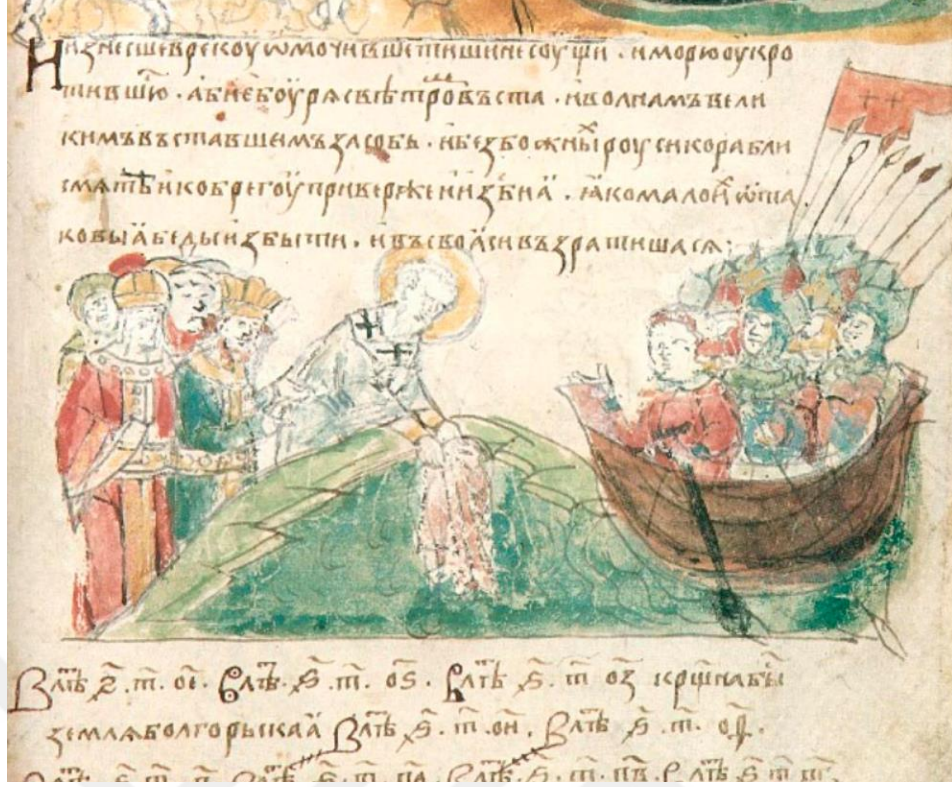 Низнесше врекоу ѡмочивше тишине соущи . и морю оукро
тившию . абие боуря свѣтромъ въста . и волнамъ вели
кимъ въставшемъ засобь . и безбожныⷯ роуси корабли
смяте и кобрегоу привержеи изби ꙗ . ꙗко малоиⷯ ѿ та
ковыа беды избыти . и въсвоаси възратишася :
Влⷮѣ ҂ѕ҃ . т҃ . ое҃ . Влⷮѣ . ҂ѕ҃ . т҃ . оѕ҃ . Влⷮѣ ҂ѕ҃ . т҃ оз҃ крщ҃на бы
земля болгорьскаꙗ Влⷮѣ ҂ѕ҃ . т҃ . ои҃ . Влⷮѣ ҂ѕ҃ . т҃ . оѳ҃ .
Влⷮѣ ҂ѕ҃ . т҃ . п҃ . Влⷮѣ ҂ѕ҃ . т҃ . па҃ . Влⷮѣ ҂ѕ҃ . т҃ . пв҃ . Влⷮѣ ҂ѕ҃ т҃ пг҃ .